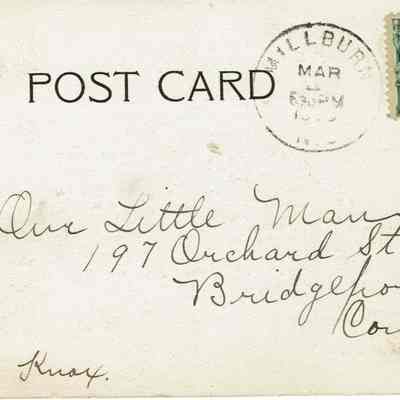 POST CARD
MILLBURN
MAR
630PM
N.J.
Our Little Man
197 Orchard St
Bridgepo
Con
Knox.